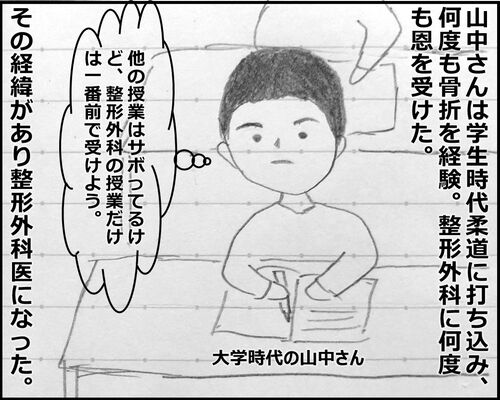 山中さんは学生時代柔道に打ち込み、
何度も骨折を経験。整形外科に何度
も恩を受けた。
他の授業はサボってるけ
ど、整形外科の授業だけ
は一番前で受けよう。
大学時代の山中さん
その経緯があり整形外科医になった。